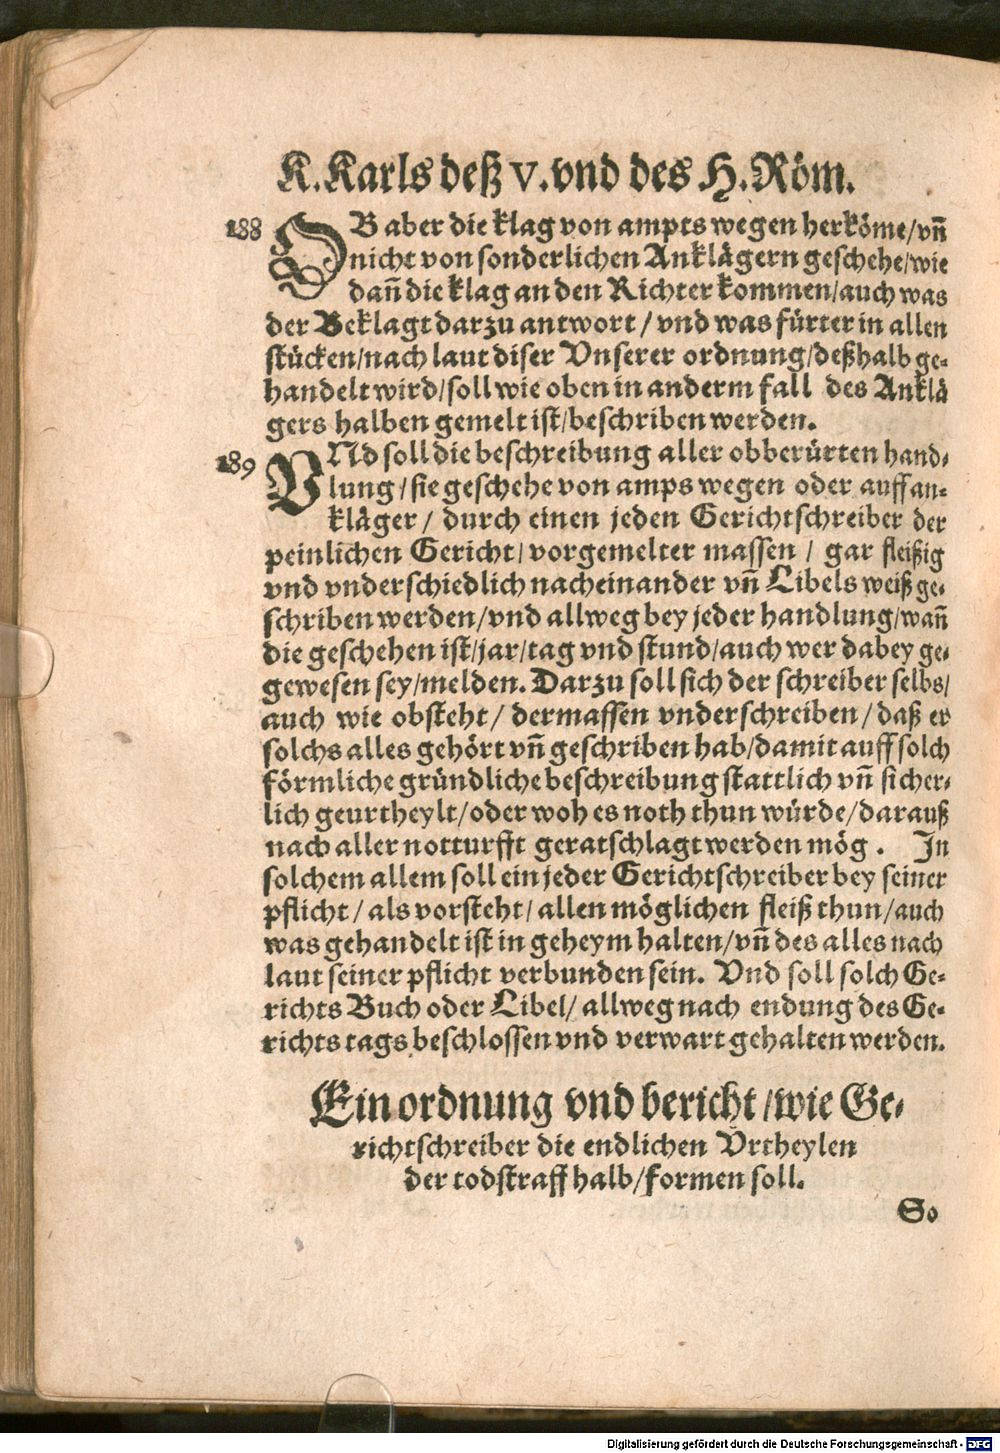 K. Karls deß V. vnd des H. Röm.
188 OB aber die klag von ampts wegen herköme/vñ
nicht von sonderlichen Anklägern geschehe/wie
dañ die klag an den Richter kommen/auch was
der Beklagt darzu antwort/vnd was fürter in allen
stücken/nach laut diser Vnserer ordnung/deßhalb ge-
handelt wird/soll wie oben in anderm fall des Anklä
gers halben gemelt ist/beschriben werden.
189 VNd soll die beschreibung aller obberürten hand-
lung/sie geschehe von amps wegen oder auff an-
kläger/durch einen jeden Gerichtschreiber der
peinlichen Gericht/vorgemelter massen/gar fleißig
vnd vnderschiedlich nacheinander vñ Libels weiß ge-
schriben werden/vnd allweg bey jeder handlung/wañ
die geschehen ist/jar/tag vnd stund/auch wer dabey ge-
gewesen sey/melden. Darzu soll sich der schreiber selbs/
auch wie obsteht/dermassen vnderschreiben/daß er
solchs alles gehört vñ geschriben hab/damit auff solch
förmliche gründliche beschreibung stattlich vñ sicher-
lich geurtheylt/oder woh es noth thun würde/darauß
nach aller notturfft geratschlagt werden mög. In
solchem allem soll ein jeder Gerichtschreiber bey seiner
pflicht/als vorsteht/allen möglichen fleiß thun/auch
was gehandelt ist in geheym halten/vñ des alles nach
laut seiner pflicht verbunden sein. Vnd soll solch Ge-
richts Buch oder Libel/allweg nach endung des Ge-
richts tags beschlossen vnd verwart gehalten werden.
Ein ordnung vnd bericht/wie Ge-
richtschreiber die endlichen Vrtheylen
der todstraff halb/formen soll.
So
Digitalisierung gefördert durch die Deutsche Forschungsgemeinschaft - DFG